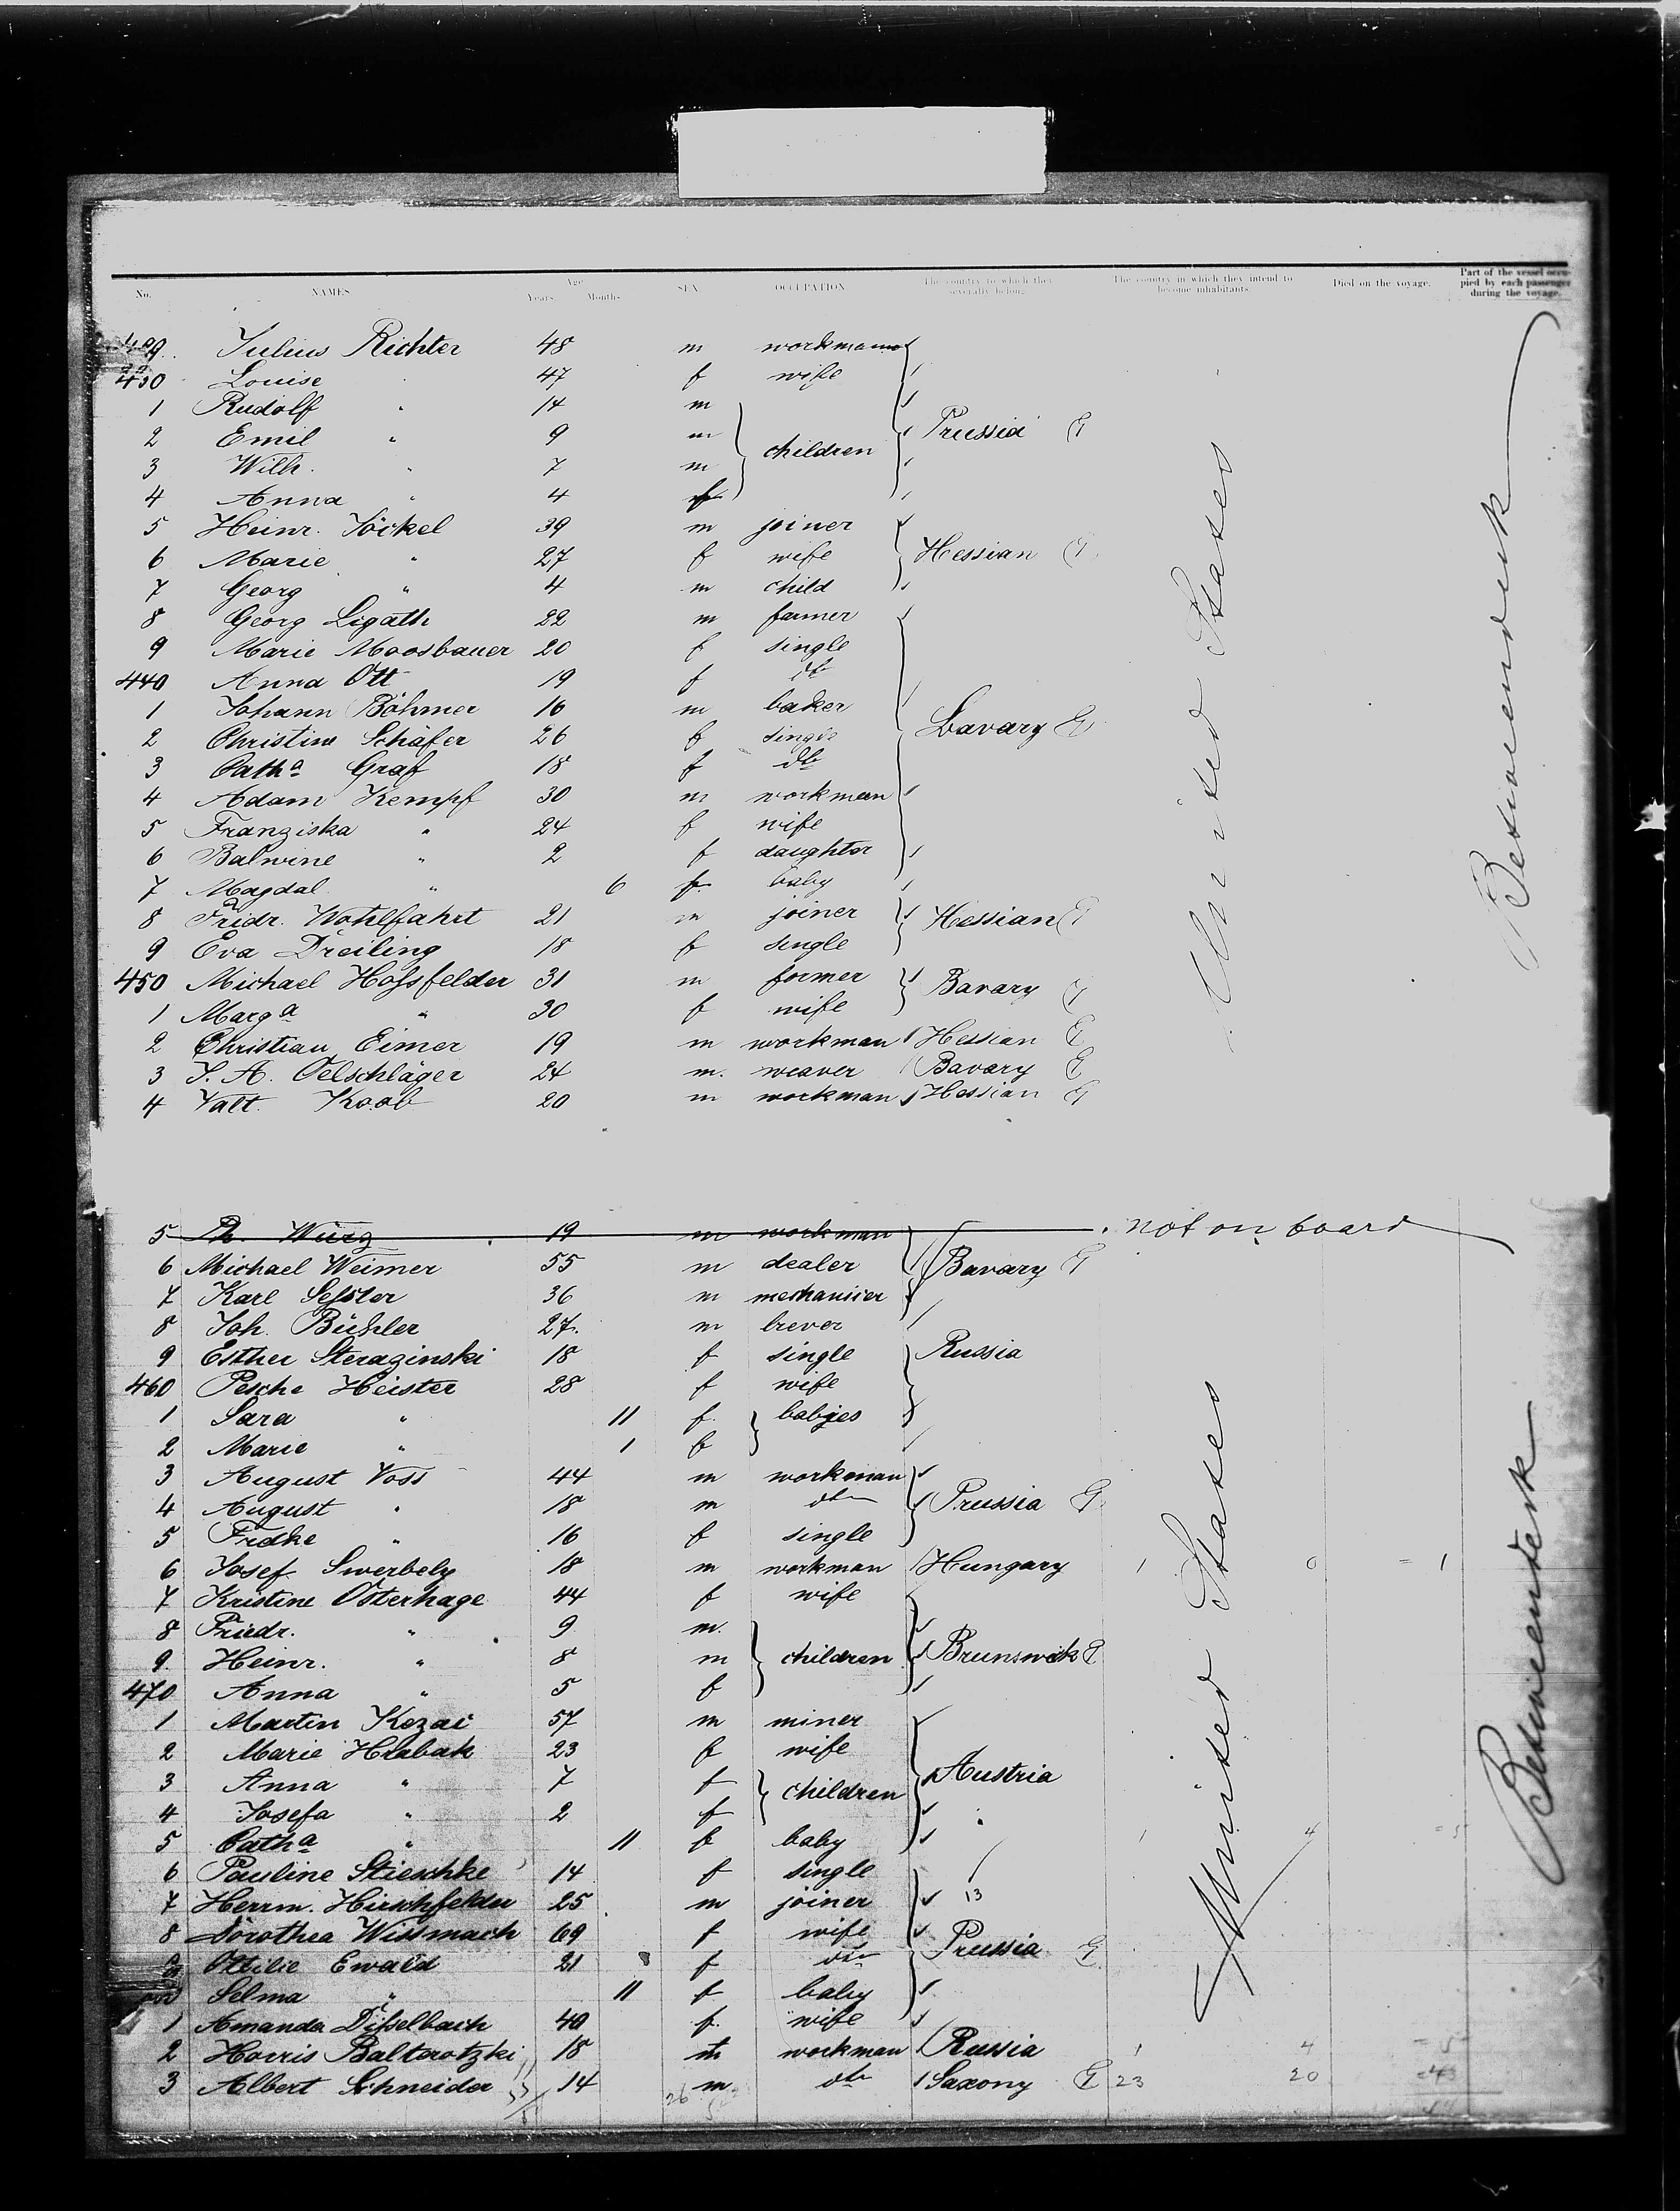 No. NAMES Age Years. Months. SEX OCCUPATION The country to which they severally belong. The country in which they intend to become inhabitants. Died on the voyage. Part of the vessel occupied by each passenger during the voyage.
429 Julius Richter 48 m workman
430 Louise 47 f wife
1 Rudolf " 14 m
2 Emil " 9 m children Prussia G
3 Wilh. " 7 m
4 Anna " 4 f
5 Heinr. Jöckel 39 m joiner
6 Marie " 27 f wife Hessian G
7 Georg " 4 m child
8 Georg Ligath 22 m farmer
9 Marie Moosbauer 20 f single
440 Anna Ott 19 f do
1 Johann Böhmer 16 m baker
2 Christine Schäfer 26 f single Bavary G
3 Catha Graf 18 f do
4 Adam Kempf 30 m workman
5 Franziska " 24 f wife
6 Balwine " 2 f daughter
7 Magdal. " 6 f baby
8 Fridr. Wohlfahrt 21 m joiner Hessian G
9 Eva Dreiling 18 f single
450 Michael Hossfelder 31 m farmer Bavary G
1 Marga " 30 f wife
2 Christian Eimer 19 m workman Hessian G
3 J. A. Oelschläger 24 m. weaver Bavary G
4 Valt. Koob 20 m workman Hessian G
United States
Betweendeck
5 Ph. Würz 19 m workman not on board
6 Michael Weimer 55 m dealer Bavary G
7 Karl Sessler 36 m mechanicer
8 Joh. Bühler 27. m brever
9 Esther Steraginski 18 f single Russia
460 Pesche Heister 28 f wife
1 Sara " 11 f. babies
2 Marie " 1 f
3 August Voss 44 m workman
4 August " 18 m do Prussia G
5 Fredke " 16 f single
6 Josef Swerbely 18 m workman Hungary 1 0 = 1
7 Kristine Osterhage 44 f wife
8 Friedr. " 9 m.
9. Heinr. " 8 m children Brunswick G
470 Anna " 5 f
1 Martin Kezai 57 m miner
2 Marie Hrabak 23 f wife
3 Anna " 7 f children Austria
4 Josefa " 2 f
5 Catha " 11 f baby 1 4 = 5
6 Pauline Stieschke 14 f single
7 Herrm. Hirschfelder 25 m joiner 13
8 Dorothea Wissmach 69 f wife Prussia G
9 Ottilie Ewald 21 f do
Selma " 11 f baby
1 Amanda Disselbach 40 f. wife
2 Horris Baltarotzki 18 m workman Russia 1 4 = 5
3 Albert Schneider 14 m do Saxony G 23 20 = 43
26
United States
Betweendeck